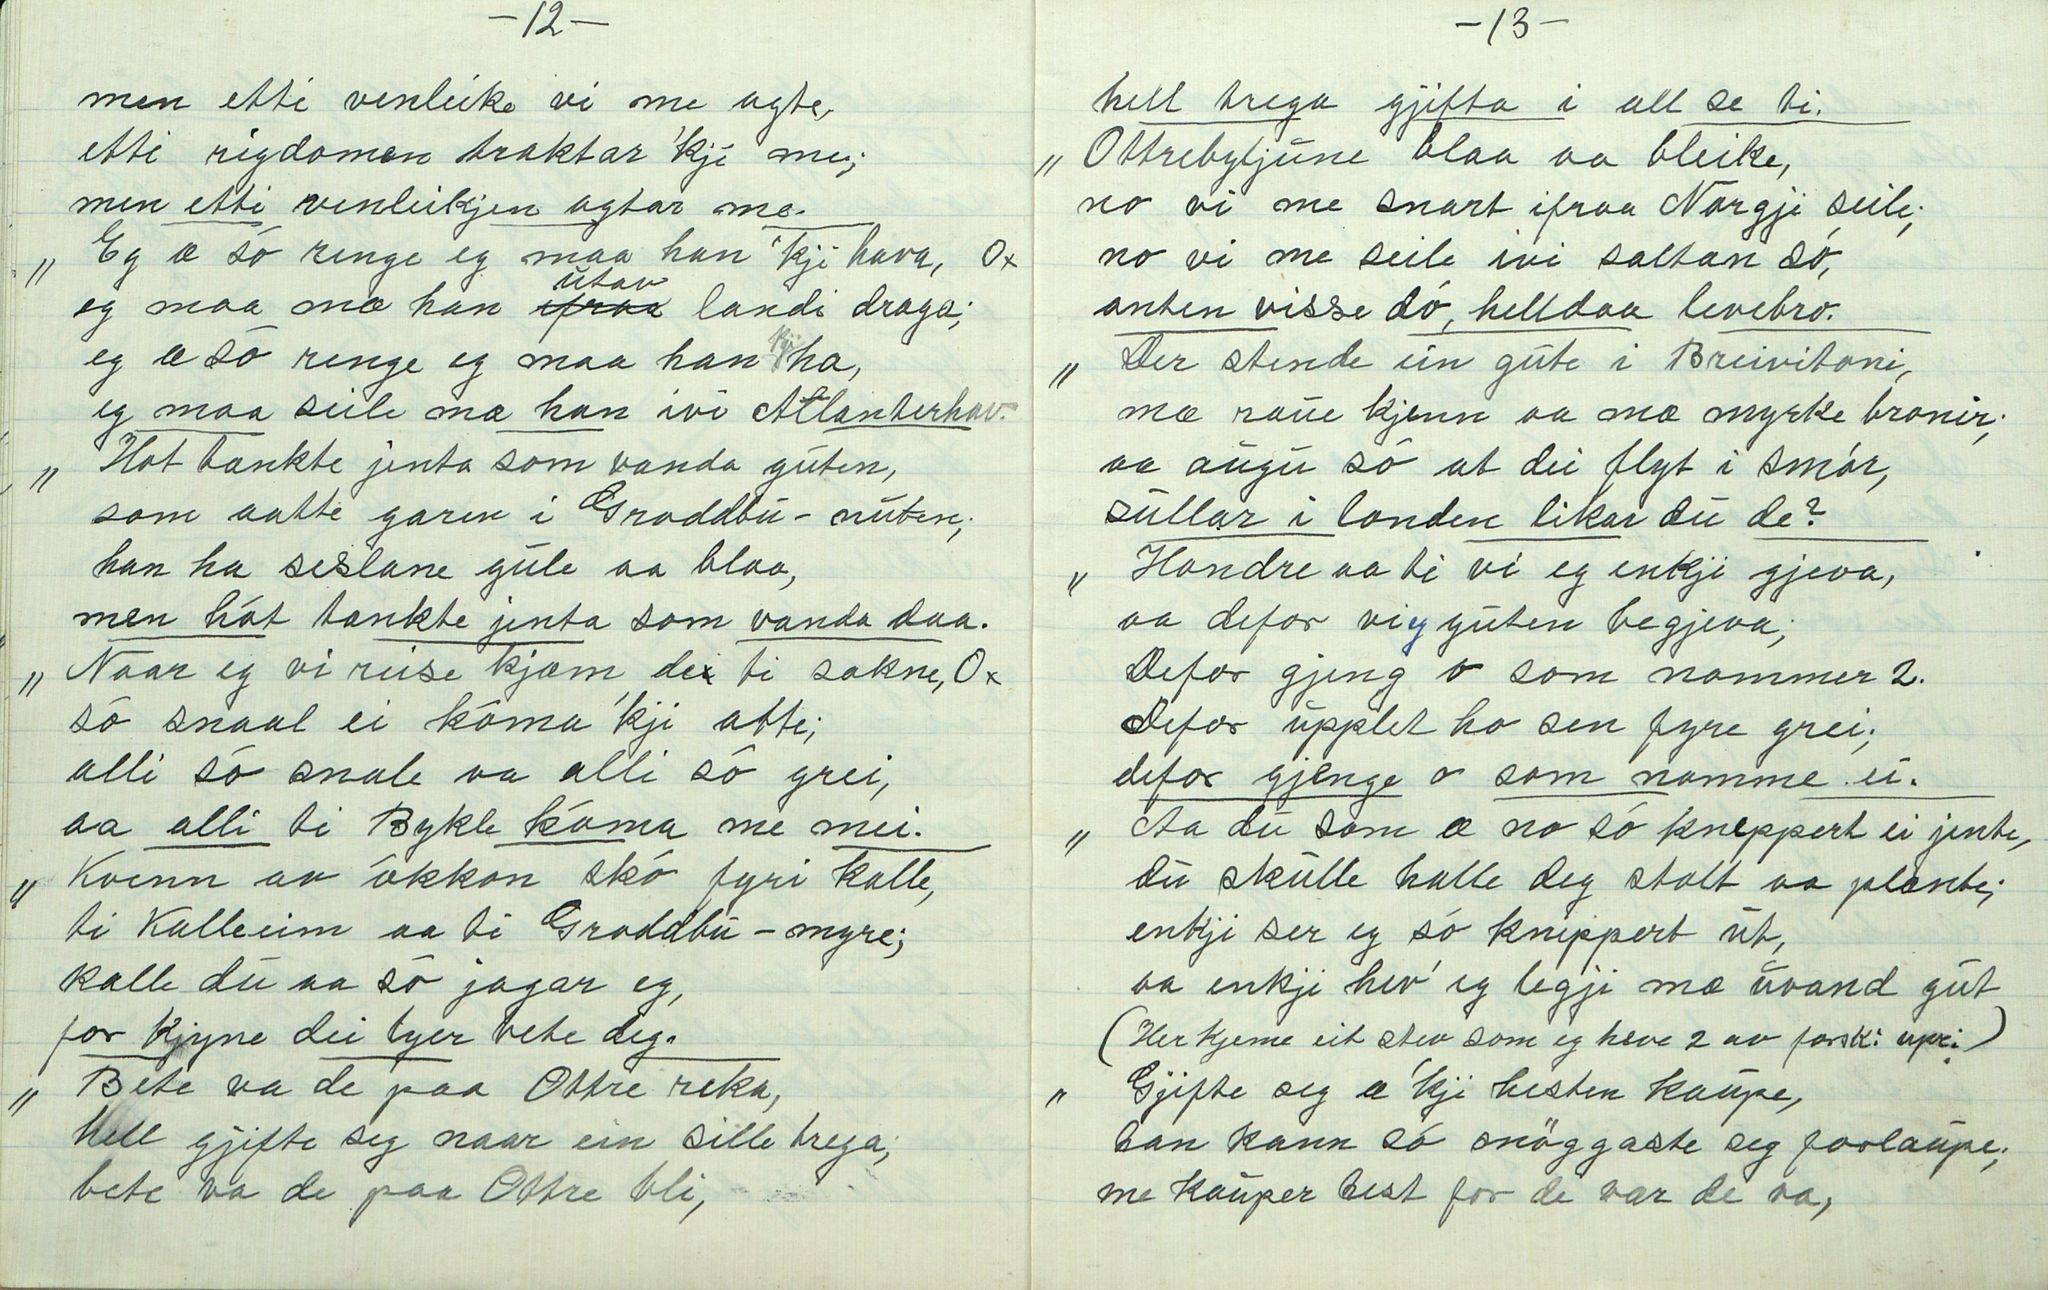 -12-
men etti venleike vi me agte,
etti rigdomen traktar 'kji me;
men etti venleikjen agtar me.
" Eg æ só renge eg maa han 'kji hava, Ox
utav
eg maa mæ han ifraa landi draga;
eg æ só renge eg maa han kji ha,
eg maa seile mæ han ivi Atlanterhav.
" Hot tænkte jenta som vanda guten,
som aatte garen i Groddbu-nuten;
han ha seslane gule aa blaa,
men hót tænkte jenta som vanda daa.
" Naar eg vi reise kjæm dei ti sakne, Ox
só snaal ei kóma 'kji atte;
alli só snale va alli só grei,
aa alli ti Bykle kóma me mei.
" Kvenn av ókkon skó fyri kalle,
ti Kalleeim aa ti Groddbu-myre;
kalle du aa só jagar eg,
for kjyne dei tyer bete deg.
" Bete va de paa Ottre reka,
hell gjifte seg naar ein sille trega;
bete va de paa Ottre bli,
-13-
hell trega gjifta i all se ti.
" Ottrebytjune blaa aa bleike,
no vi me snart ifraa Norgji seile;
no vi me seile ivi saltan só,
anten visse dó, helldaa levebro.
" Der stende ein gute i Breivitoni,
mæ raue kjenn aa mæ myrke bronir;
aa augu só at dei flyt i smór,
sullar i londen likar du de?
" Hondre aa ti vi eg enkji gjeva,
aa defor vi eg guten begjeva;
Defor gjeng o som nommer 2.
Defor upplet ho sen fyre grei;
defor gjenge o som nomme ei.
" Aa du som æ no só kneppert ei jente,
du skulle halle deg stolt aa plente;
enkji ser eg só knippert ut,
aa enkji hev' eg legji mæ uvand gut
(Her kjeme eit stev som eg heve 2 av forsk: upr:)
" Gjifte seg æ 'kji hesten kaupe,
han kann só snöggaste seg forlaupe;
me kauper hest for de var de va,